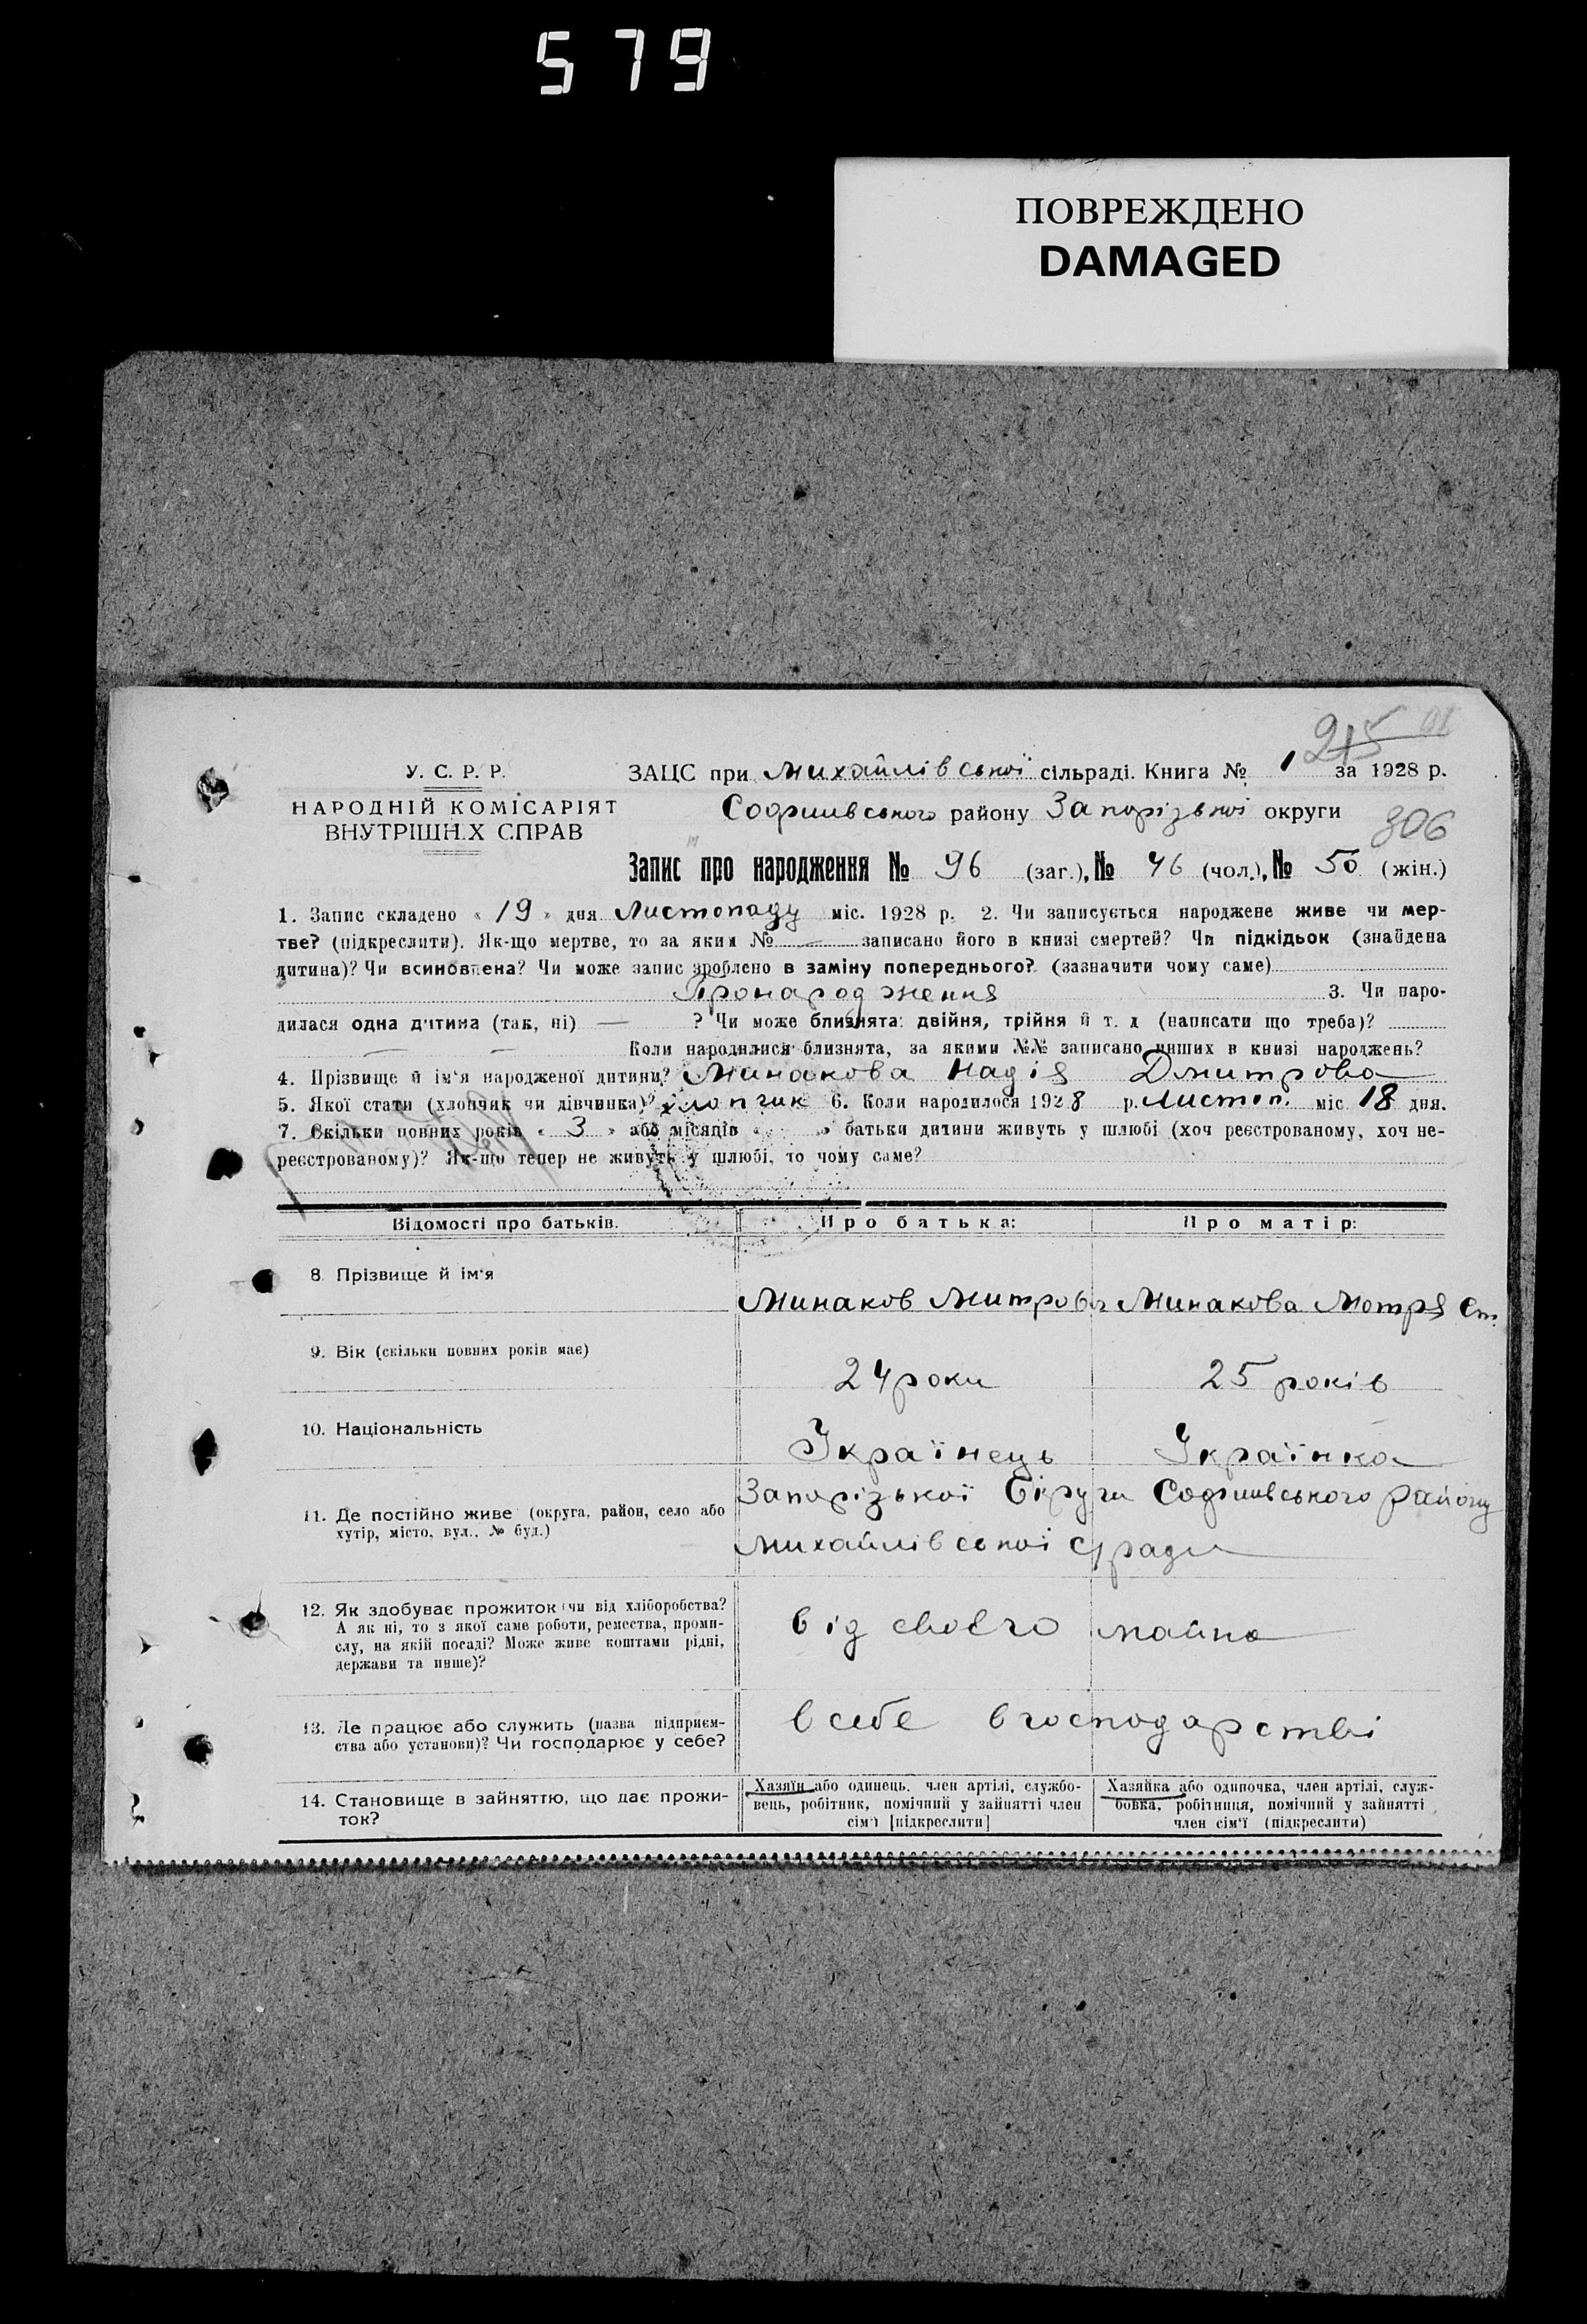 579
ПОВРЕЖДЕНО
DAMAGED
215
У. С. Р. Р.
НАРОДНІЙ КОМІСАРІЯТ
ВНУТРІШН.Х СПРАВ
ЗАЦС при Михайлівської сільраді. Книга № 1 за 1928 р.
Софиивського району Запорізької округи
306
Запис про народження № 96 (заг.), № 46 (чол.), № 50 (жін.)
1. Запис складено « 19 » дня Листопаду міс. 1928 р. 2. Чи записується народжене живе чи мер-
тве? (підкреслити). Як-що мертве, то за яким № — записано його в книзі смертей? Чи підкідьок (знайдена
дитина)? Чи всиновлена? Чи може запис зроблено в заміну попереднього? (зазначити чому саме)
Про народження 3. Чи наро-
дилася одна дитина (так, ні) — ? Чи може близнята: двійня, трійня й т. д (написати що треба)?
— — Коли народилися близнята, за якими №№ записано инших в книзі народжень?
4. Прізвище й ім'я народженої дитини? Минакова Надія Дмитрова
5. Якої стати (хлопчик чи дівчинка)? хлопчик 6. Коли народилося 1928 р. Листоп. міс 18 дня.
7. Скільки повних років « 3 » або місяців « » батьки дитини живуть у шлюбі (хоч реєстрованому, хоч не-
реєстрованому)? Як-що тепер не живуть у шлюбі, то чому саме?
Відомості про батьків. Про батька: Про матір:
8. Прізвище й ім'я Минаков Митрова Минакова Мотря Єт.
9. Вік (скільки повних років має) 24 роки 25 років
10. Національність Українець Українка
11. Де постійно живе (округа, район, село або
хутір, місто, вул., № буд.)
Запорізької Округи Софиивського району
Михайлівської с/ради
12. Як здобуває прожиток (чи від хліборобства?
А як ні, то з якої саме роботи, ремества, проми-
слу, на якій посаді? Може живе коштами рідні,
держави та инше)?
від своєго майна
13. Де працює або служить (назва підприєм-
ства або установи)? Чи господарює у себе?
в себе в господарстві
14. Становище в зайняттю, що дає прожи-
ток?
Хазяїн або одинець, член артілі, службо-
вець, робітник, помічний у зайнятті член
сім'ї [підкреслити]
Хазяйка або одиночка, член артілі, служ-
бовка, робітниця, помічний у зайнятті
член сім'ї (підкреслити)